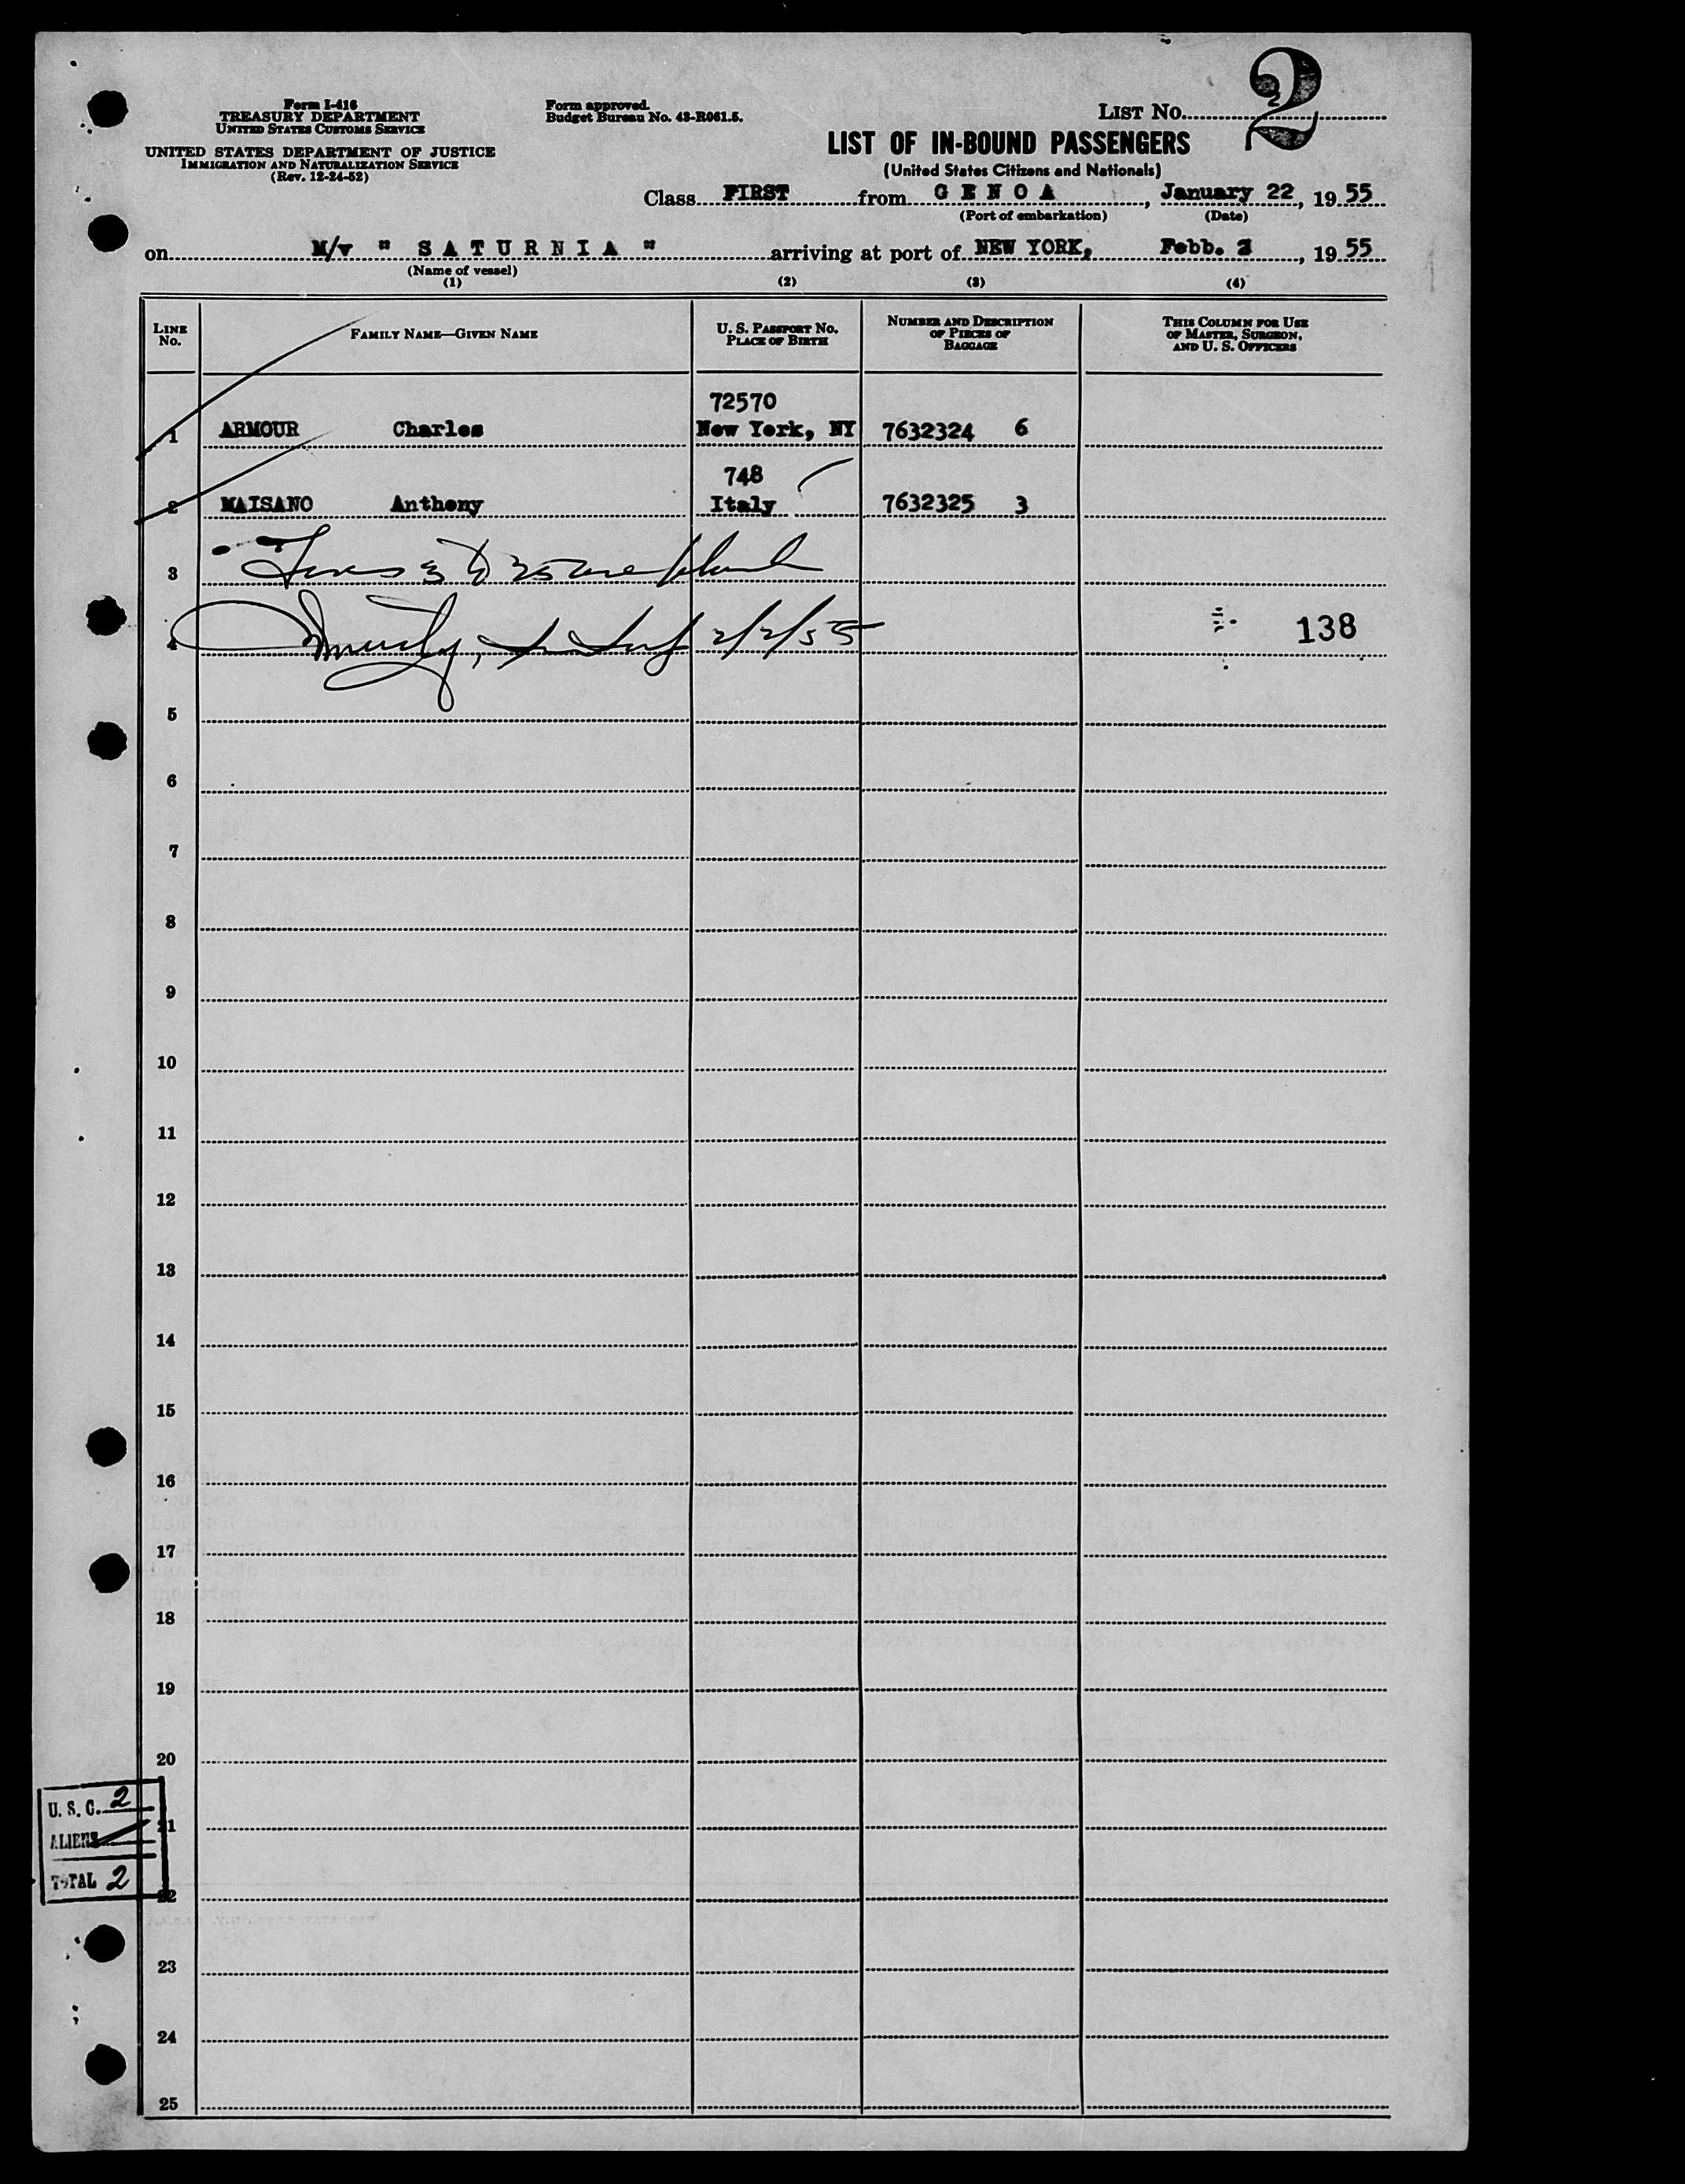 Form I-416
TREASURY DEPARTMENT
UNITED STATES CUSTOMS SERVICE
UNITED STATES DEPARTMENT OF JUSTICE
IMMIGRATION AND NATURALIZATION SERVICE
(Rev. 12-24-52)
Form approved.
Budget Bureau No. 43-R061.5.
LIST No. 2
LIST OF IN-BOUND PASSENGERS
(United States Citizens and Nationals)
Class FIRST from G E N O A, January 22, 19 55
(Port of embarkation) (Date)
on M/v " S A T U R N I A " arriving at port of NEW YORK, Febb. 2, 19 55
(Name of vessel)
(1) (2) (3) (4)
LINE No.
FAMILY NAME—GIVEN NAME
U. S. PASSPORT No.
PLACE OF BIRTH
NUMBER AND DESCRIPTION
OF PIECES OF
BAGGAGE
THIS COLUMN FOR USE
OF MASTER, SURGEON,
AND U. S. OFFICERS
72570
1 ARMOUR Charles New York, NY 7632324 6
748
2 MAISANO Anthony Italy 7632325 3
3 Lines 3 to 25 are blank
4 2/2/55 138
5
6
7
8
9
10
11
12
13
14
15
16
17
18
19
20
U. S. C. 2
21
ALIENS
TOTAL 2
22
23
24
25